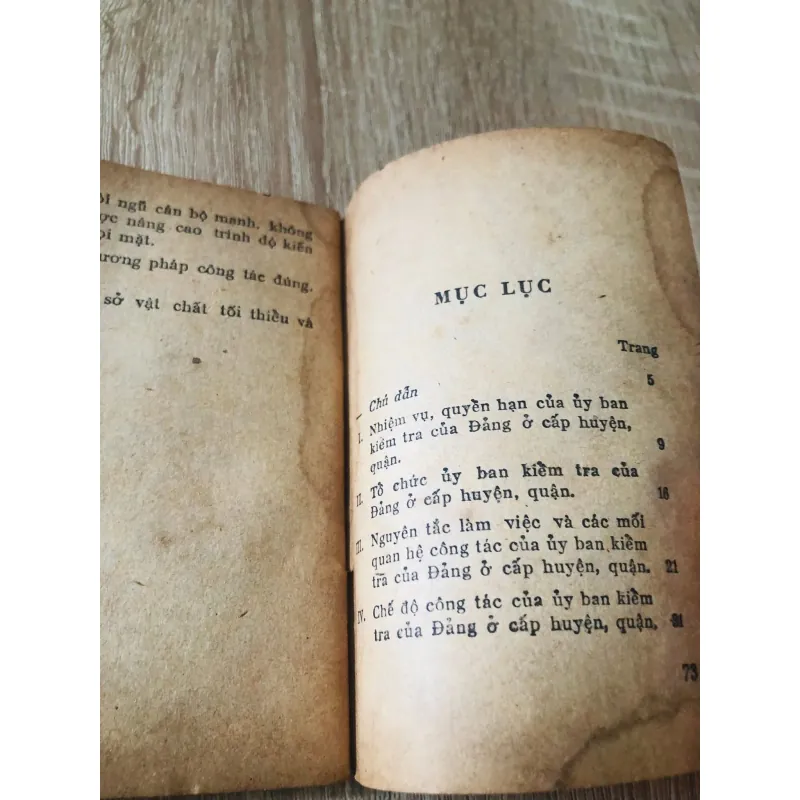 ội ngũ cán bộ mạnh, không
ược nâng cao trình độ kiến
ọi mặt.
ương pháp công tác đúng,
sở vật chất tối thiểu và
MỤC LỤC
Trang
— Chú dẫn 5
I. Nhiệm vụ, quyền hạn của ủy ban
kiểm tra của Đảng ở cấp huyện,
quận. 9
II. Tổ chức ủy ban kiểm tra của
Đảng ở cấp huyện, quận. 16
III. Nguyên tắc làm việc và các mối
quan hệ công tác của ủy ban kiểm
tra của Đảng ở cấp huyện, quận. 21
IV. Chế độ công tác của ủy ban kiểm
tra của Đảng ở cấp huyện, quận. 31
73